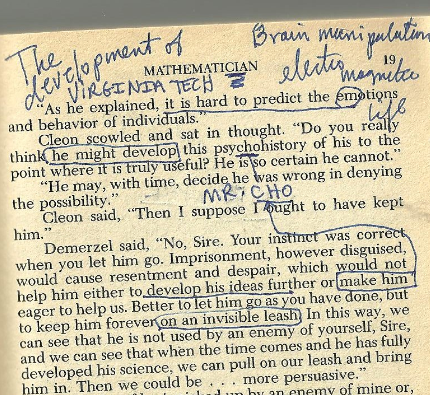 The development of
VIRGINIA TECH
Brain manipulation
electro magnetic
life
MATHEMATICIAN 19
"As he explained, it is hard to predict the emotions
and behavior of individuals."
Cleon scowled and sat in thought. "Do you really
think he might develop this psychohistory of his to the
point where it is truly useful? He is so certain he cannot."
"He may, with time, decide he was wrong in denying
the possibility."
MR CHO
Cleon said, "Then I suppose I ought to have kept
him."
Demerzel said, "No, Sire. Your instinct was correct
when you let him go. Imprisonment, however disguised,
would cause resentment and despair, which would not
help him either to develop his ideas further or make him
eager to help us. Better to let him go as you have done, but
to keep him forever on an invisible leash. In this way, we
can see that he is not used by an enemy of yourself, Sire,
and we can see that when the time comes and he has fully
developed his science, we can pull on our leash and bring
him in. Then we could be . . . more persuasive."
by an enemy of mine or,